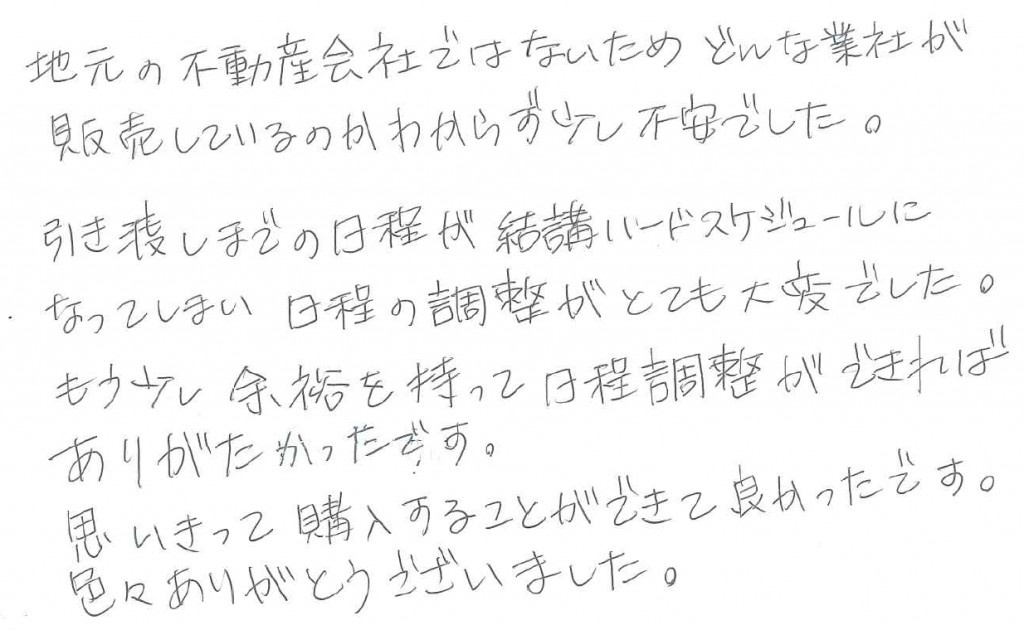 地元の不動産会社ではないため どんな業社が
販売しているのかわからず少し不安でした。
引き渡しまでの日程が結構ハードスケジュールに
なってしまい 日程の調整がとても大変でした。
もう少し 余裕を持って日程調整ができれば
ありがたかったです。
思いきって購入することができて良かったです。
色々ありがとうございました。